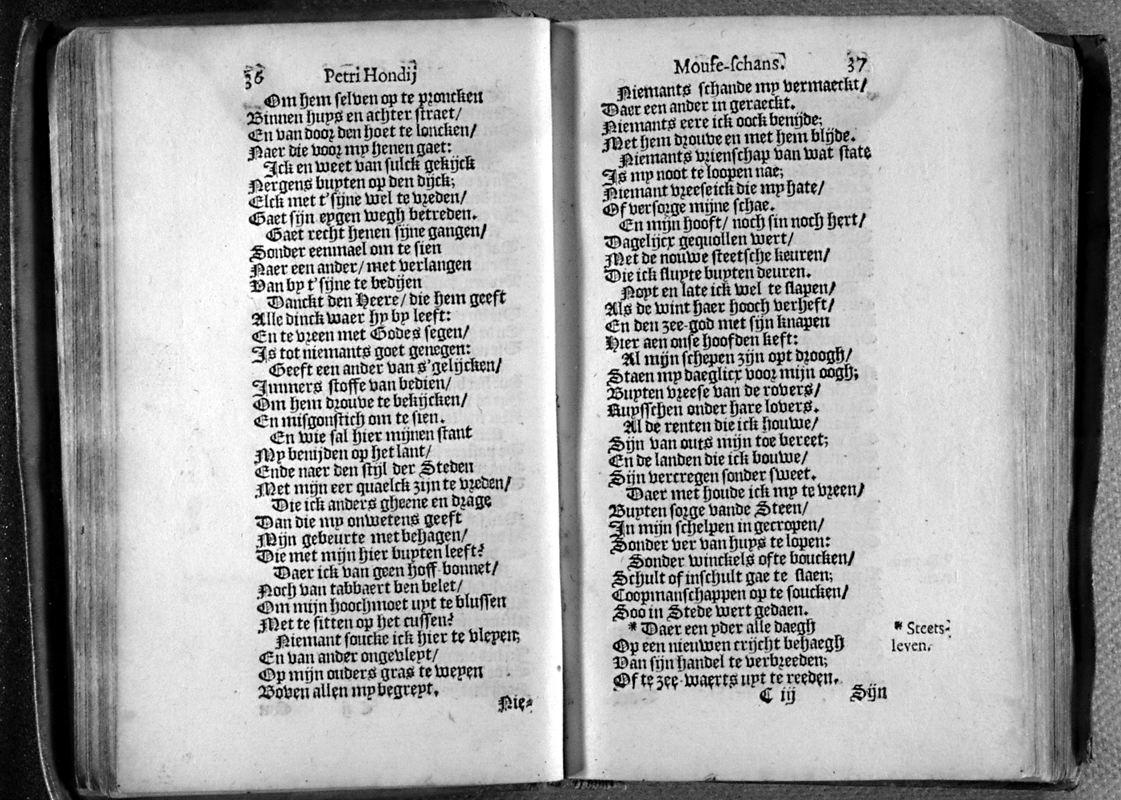 36 Petri Hondij
Om hem selven op te proncken
Binnen huys en achter straet/
En van door den hoet te loncken/
Naer die voor my henen gaet:
Ick en weet van sulck gekijck
Nergens buyten op den dijck;
Elck met t'sijne wel te vreden/
Gaet sijn eygen wegh betreden.
Gaet recht henen sijne gangen/
Sonder eenmael om te sien
Naer een ander/ met verlangen
Van by t'sijne te bedijen
Danckt den Heere/ die hem geeft
Alle dinck waer hy by leeft:
En te vreen met Godes segen/
Is tot niemants goet genegen:
Geeft een ander van s'gelijcken/
Immers stoffe van bedien/
Om hem drouve te bekijcken/
En misgonstich om te sien.
En wie sal hier mijnen stant
My benijden op het lant/
Ende naer den stijl der Steden
Met mijn eer quaelck zijn te vreden/
Die ick anders gheene en drage
Dan die my onwetens geeft
Mijn gebeurte met behagen/
Die met mijn hier buyten leeft?
Daer ick van geen hoff-bonnet/
Noch van tabbaert ben belet/
Om mijn hoochmoet uyt te blussen
Met te sitten op het cussen?
Niemant soucke ick hier te vleyen;
En van ander ongevleyt/
Op mijn ouders gras te weyen
Boven allen my begreyt.
Nie-
Mouse-schans. 37
Niemants schande my vermaeckt/
Daer een ander in geraeckt.
Niemants eere ick oock benijde;
Met hem drouve en met hem blijde.
Niemants vrienschap van wat state
Is my noot te loopen nae;
Niemant vreese ick die my hate/
Of versorge mijne schae.
En mijn hooft/ noch sin noch hert/
Dagelijcx gequollen wert/
Met de nouwe steetsche keuren/
Die ick sluyte buyten deuren.
Noyt en late ick wel te slapen/
Als de wint haer hooch verheft/
En den zee-god met sijn knapen
Hier aen onse hoofden keft:
Al mijn schepen zijn opt droogh/
Staen my daeglicx voor mijn oogh;
Buyten vreese van de rovers/
Ruysschen onder hare lovers.
Al de renten die ick houwe/
Sijn van outs mijn toe bereet;
En de landen die ick bouwe/
Sijn vercregen sonder sweet.
Daer met houde ick my te vreen/
Buyten sorge vande Steen/
In mijn schelpen in gecropen/
Sonder ver van huys te lopen:
Sonder winckels ofte boucken/
Schult of inschult gae te slaen;
Coopmanschappen op te soucken/
Soo in Stede wert gedaen.
* Daer een yder alle daegh
Op een nieuwen crijcht behaegh
Van sijn handel te verbreeden;
Of te zee-waerts uyt te reeden.
* Steets-
leven.
C ij Sijn